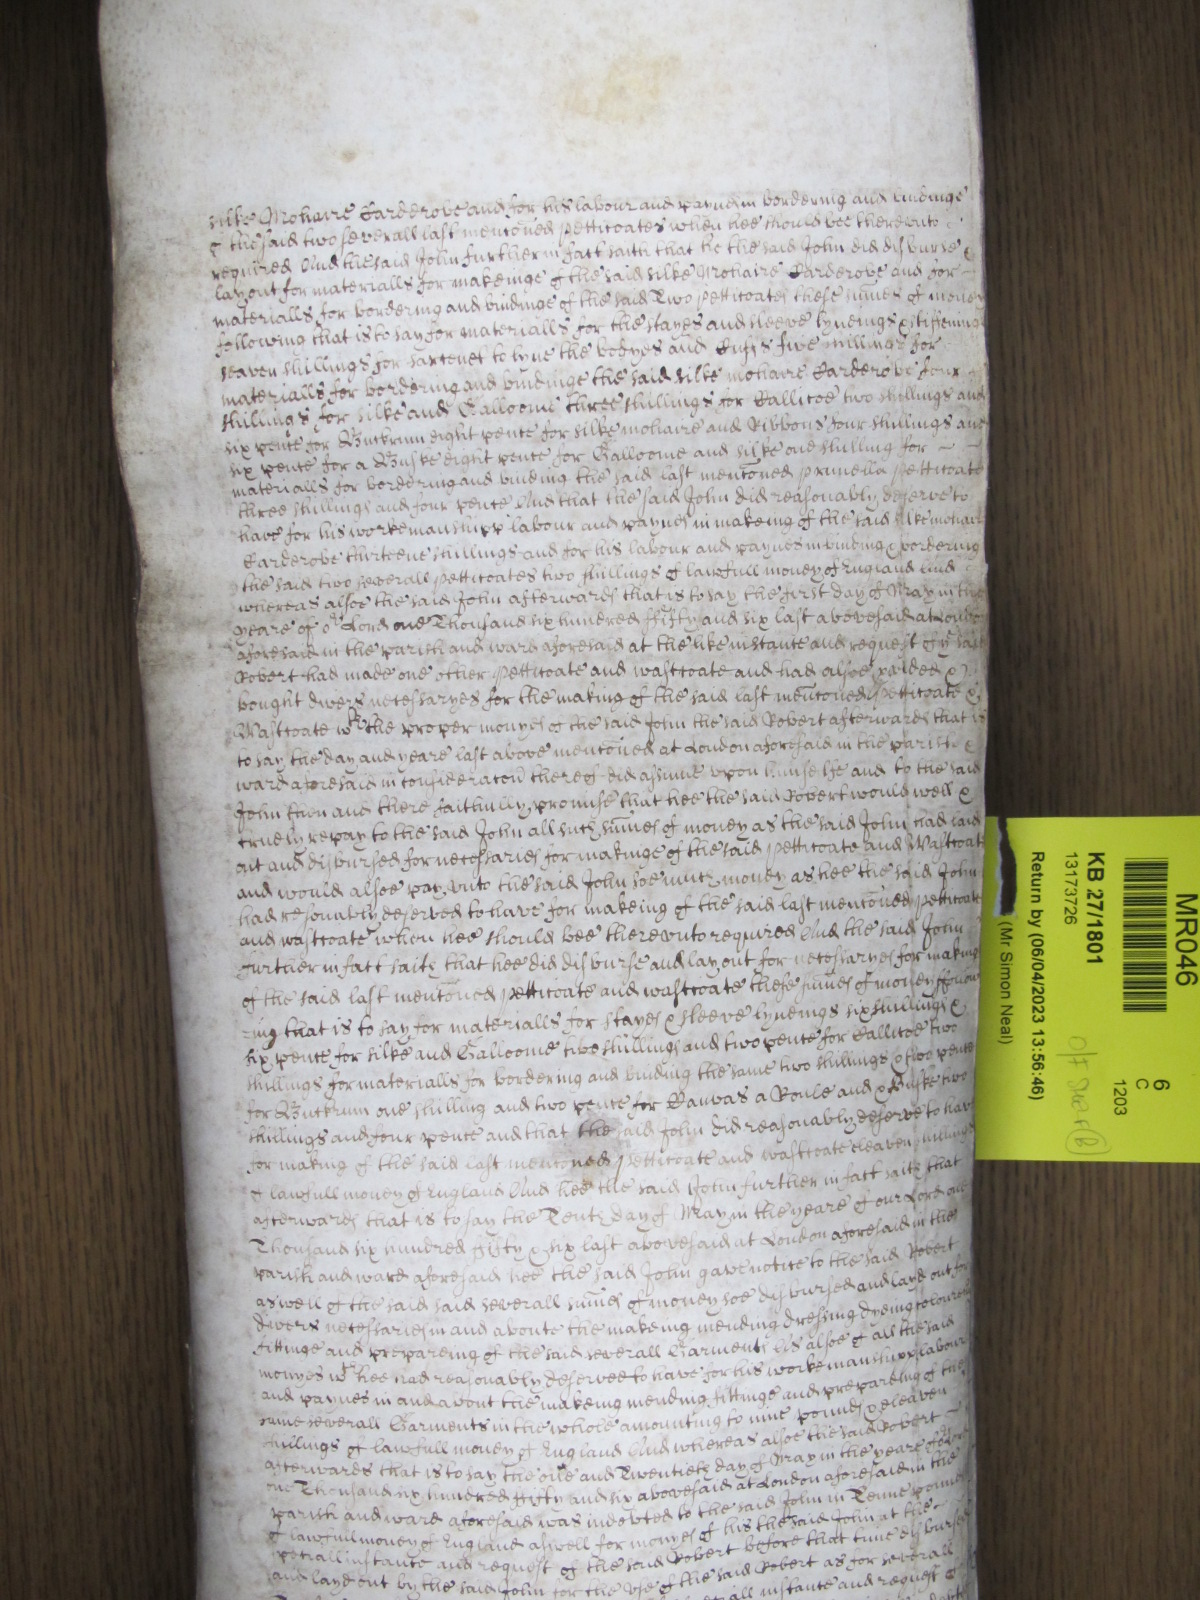 silke Mohaire Carderobe and for his labour and paynes in bordering and bindinge
of the said two severall last mentoned petticoates when hee should bee therevnto
required And the said John further in fact saith that he the said John did disburse &
lay out for materialls for makeinge of the said silke Mohaire Carderobe and for
materialls for bordering and bindinge of the said Two petticoates these sumes of money
following that is to say for materialls for the stayes and sleeve lyneings & stiffening
seaven shillings for sarcenet to lyne the bodyes and Cuffs five shillings for
materialls for bordering and bindinge the said silke mohaire Carderobe four
shillings for silke and Galloome three shillings for Callicoe two shillings and
six pence for Buckrum eight pence for silke mohaire and Ribbons four shillings and
six pence for a Buske eight pence for Galloome and silke one shilling for
materialls for bordering and binding the said last mentoned prunella petticoate
three shillings and four pence And that the said John did reasonably deserve to
have for his workemanshipp labour and paynes in makeing of the said silke mohair
Carderobe thirteene shillings and for his labour and paynes in binding & bordering
the said two severall petticoates two shillings of lawfull money of England And
whereas alsoe the said John afterwards that is to say the first day of May in the
yeare of or Lord one Thousand six hundred fifty and six last abovesaid at London
aforesaid in the parish and ward aforesaid at the like instance and request of ye said
Robert had made one other petticoate and wastcoate and had alsoe &
bought divers necessaryes for the making of the said last mentoned petticoate &
Wastcoate wth the proper monyes of the said John the said Robert afterwards that is
to say the day and yeare last above mentoned at London aforesaid in the parish &
ward aforesaid in consideracon thereof did assume vpon himselfe and to the said
John then and there faithfully promise that hee the said Robert would well &
truely repay to the said John all such sumes of money as the said John had laid
out and disbursed for necessaries for makinge of the said petticoate and Wastcoat
and would alsoe pay vnto the said John soe much money as hee the said John
had resonably deserved to have for makeing of the said last mentoned petticoate
and wastcoate when hee should bee therevnto required And the said John
further in fact saith that hee did disburse and lay out for necessaryes for making
of the said last mentoned petticoate and wastcoate these sumes of money ffollow
=ing that is to say for materialls for stayes & sleeve lyneings six shillings &
six pence for silke and Galloome two shillings and two pence for Callicoe two
shillings for materialls for bordering and binding the same two shillings & two pence
for Buckrum one shilling and two pence for Canvas a Roule and a Buske two
shillings and four pence and that the said John did reasonably deserve to have
for making of the said last mentoned petticoate and wastcoate eleaven shillings
of lawfull money of England And hee the said John further in fact saith that
afterwards that is to say the Tenth day of May in the yeare of our Lord one
Thousand six hundred fifty & six last abovesaid at London aforesaid in the
parish and ward aforesaid hee the said John gave notice to the said Robert
aswell of the said said severall sumes of money soe disbursed and layd out for
divers necessaries in and aboute the makeing mending dressing dyeing coloureing
fittinge and prepareing of the said severall Garments As alsoe of all the said
monyes wch hee had reasonably deserved to have for his workemanshipp labour
and paynes in and about the makeing mending fittinge and prepareing of the
same severall Garments in the whole amounting to nine pounds & eleaven
shillings of lawfull money of England And whereas alsoe the said Robert
afterwards that is to say the one and Twentieth day of May in the yeare of or Lord
one Thousand six hundred fifty and six abovesaid at London aforesaid in the
parish and ward aforesaid was indebted to the said John in Tenne pounds
of lawfull money of England aswell for monyes of his the said John at the
speciall instance and request of the said Robert before that time disbursed
and layd out by the said John for the vse of the said Robert as for severall
instance and request of
MR046
6
C
1203
KB 27/1801
13173726
Return by (06/04/2023 13:56:46)
(Mr Simon Neal)